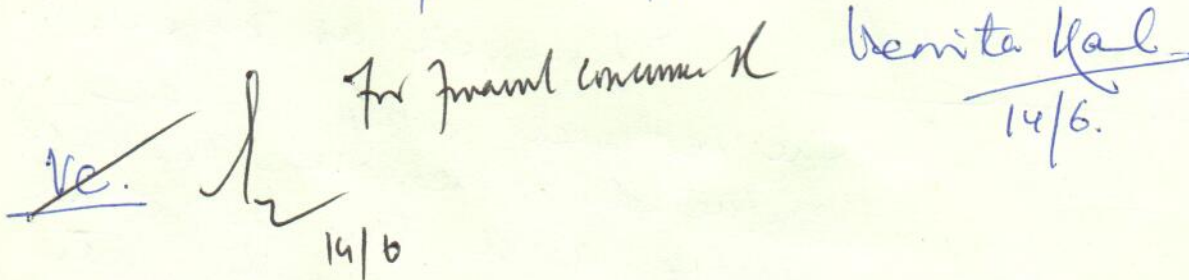 For Financial concurrence pl
Vemita Kaul
14/6.
VC.
14/6